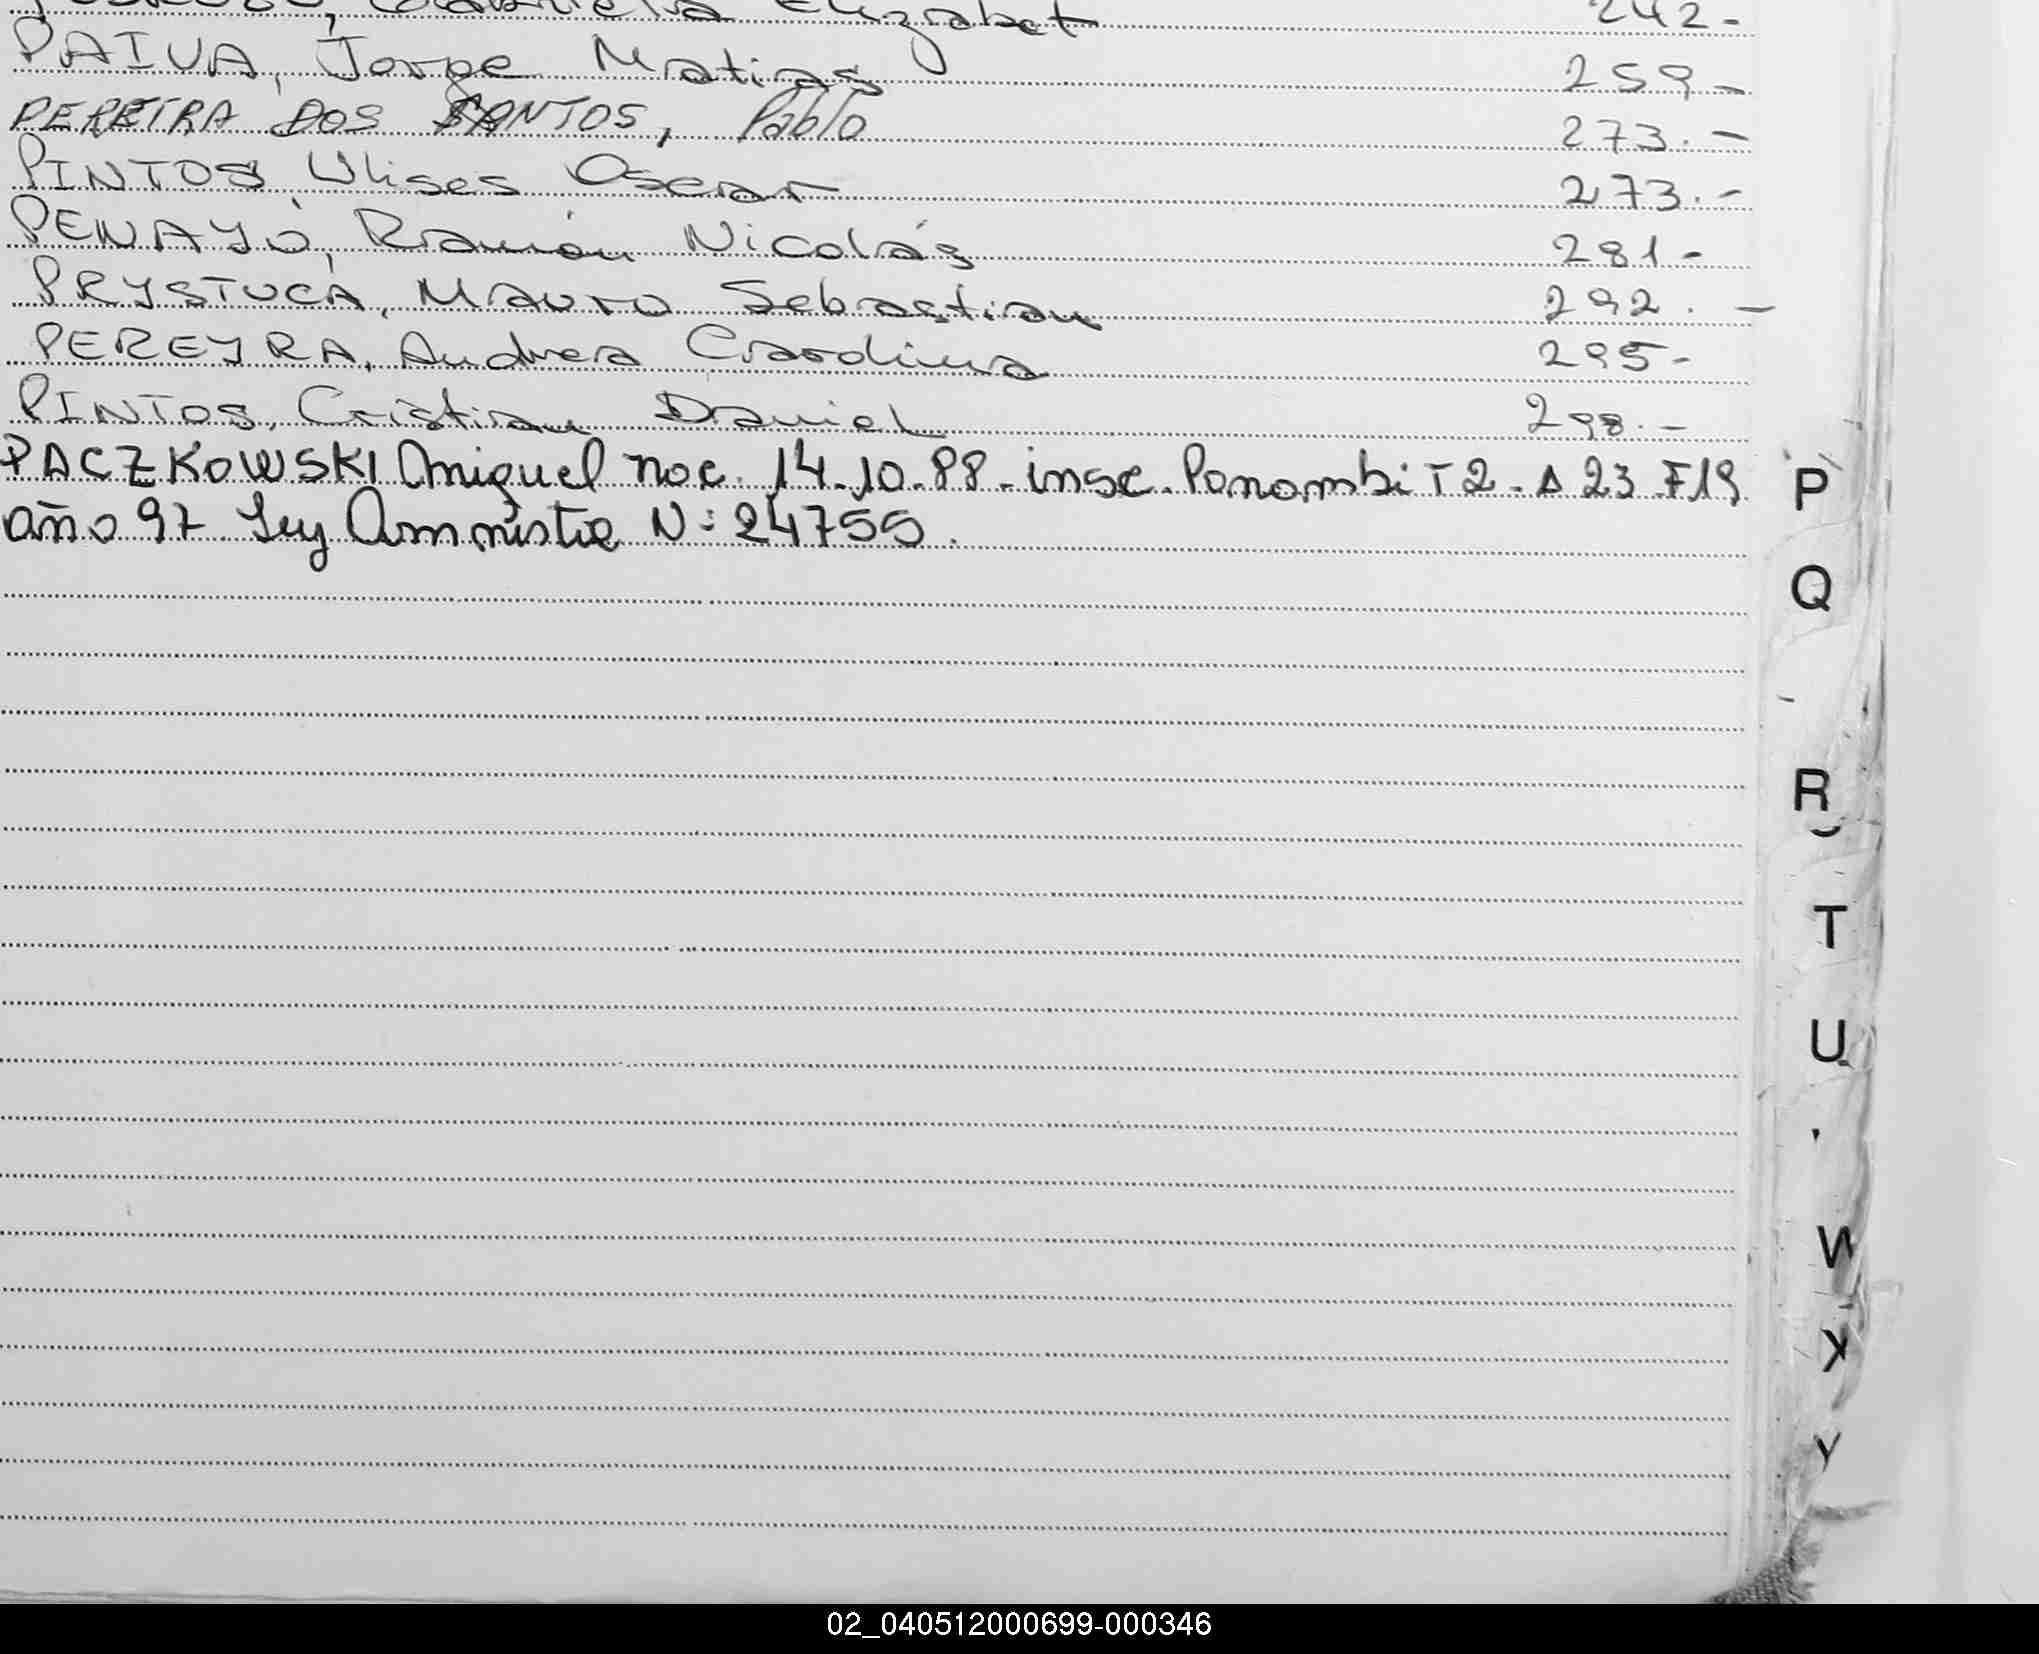 Gabriela Elizabet 242-
PAIVA, Jorge Matias 259-
PEREIRA DOS SANTOS, Pablo 273.-
PINTOS, Ulises Oscar 273.-
PENAYO, Ramón Nicolás 281-
PRYSTUCA, Mauro Sebastian 292.-
PEREYRA, Andrea Carolina 295-
PINTOS, Cristian Daniel 298.-
PACZKOWSKI Miguel nac. 14.10.88- insc. Panambi T2. A 23 F19
año 97. Ley Amnistia N: 24755.
P
Q
R
T
U
W
X
Y
02_040512000699-000346